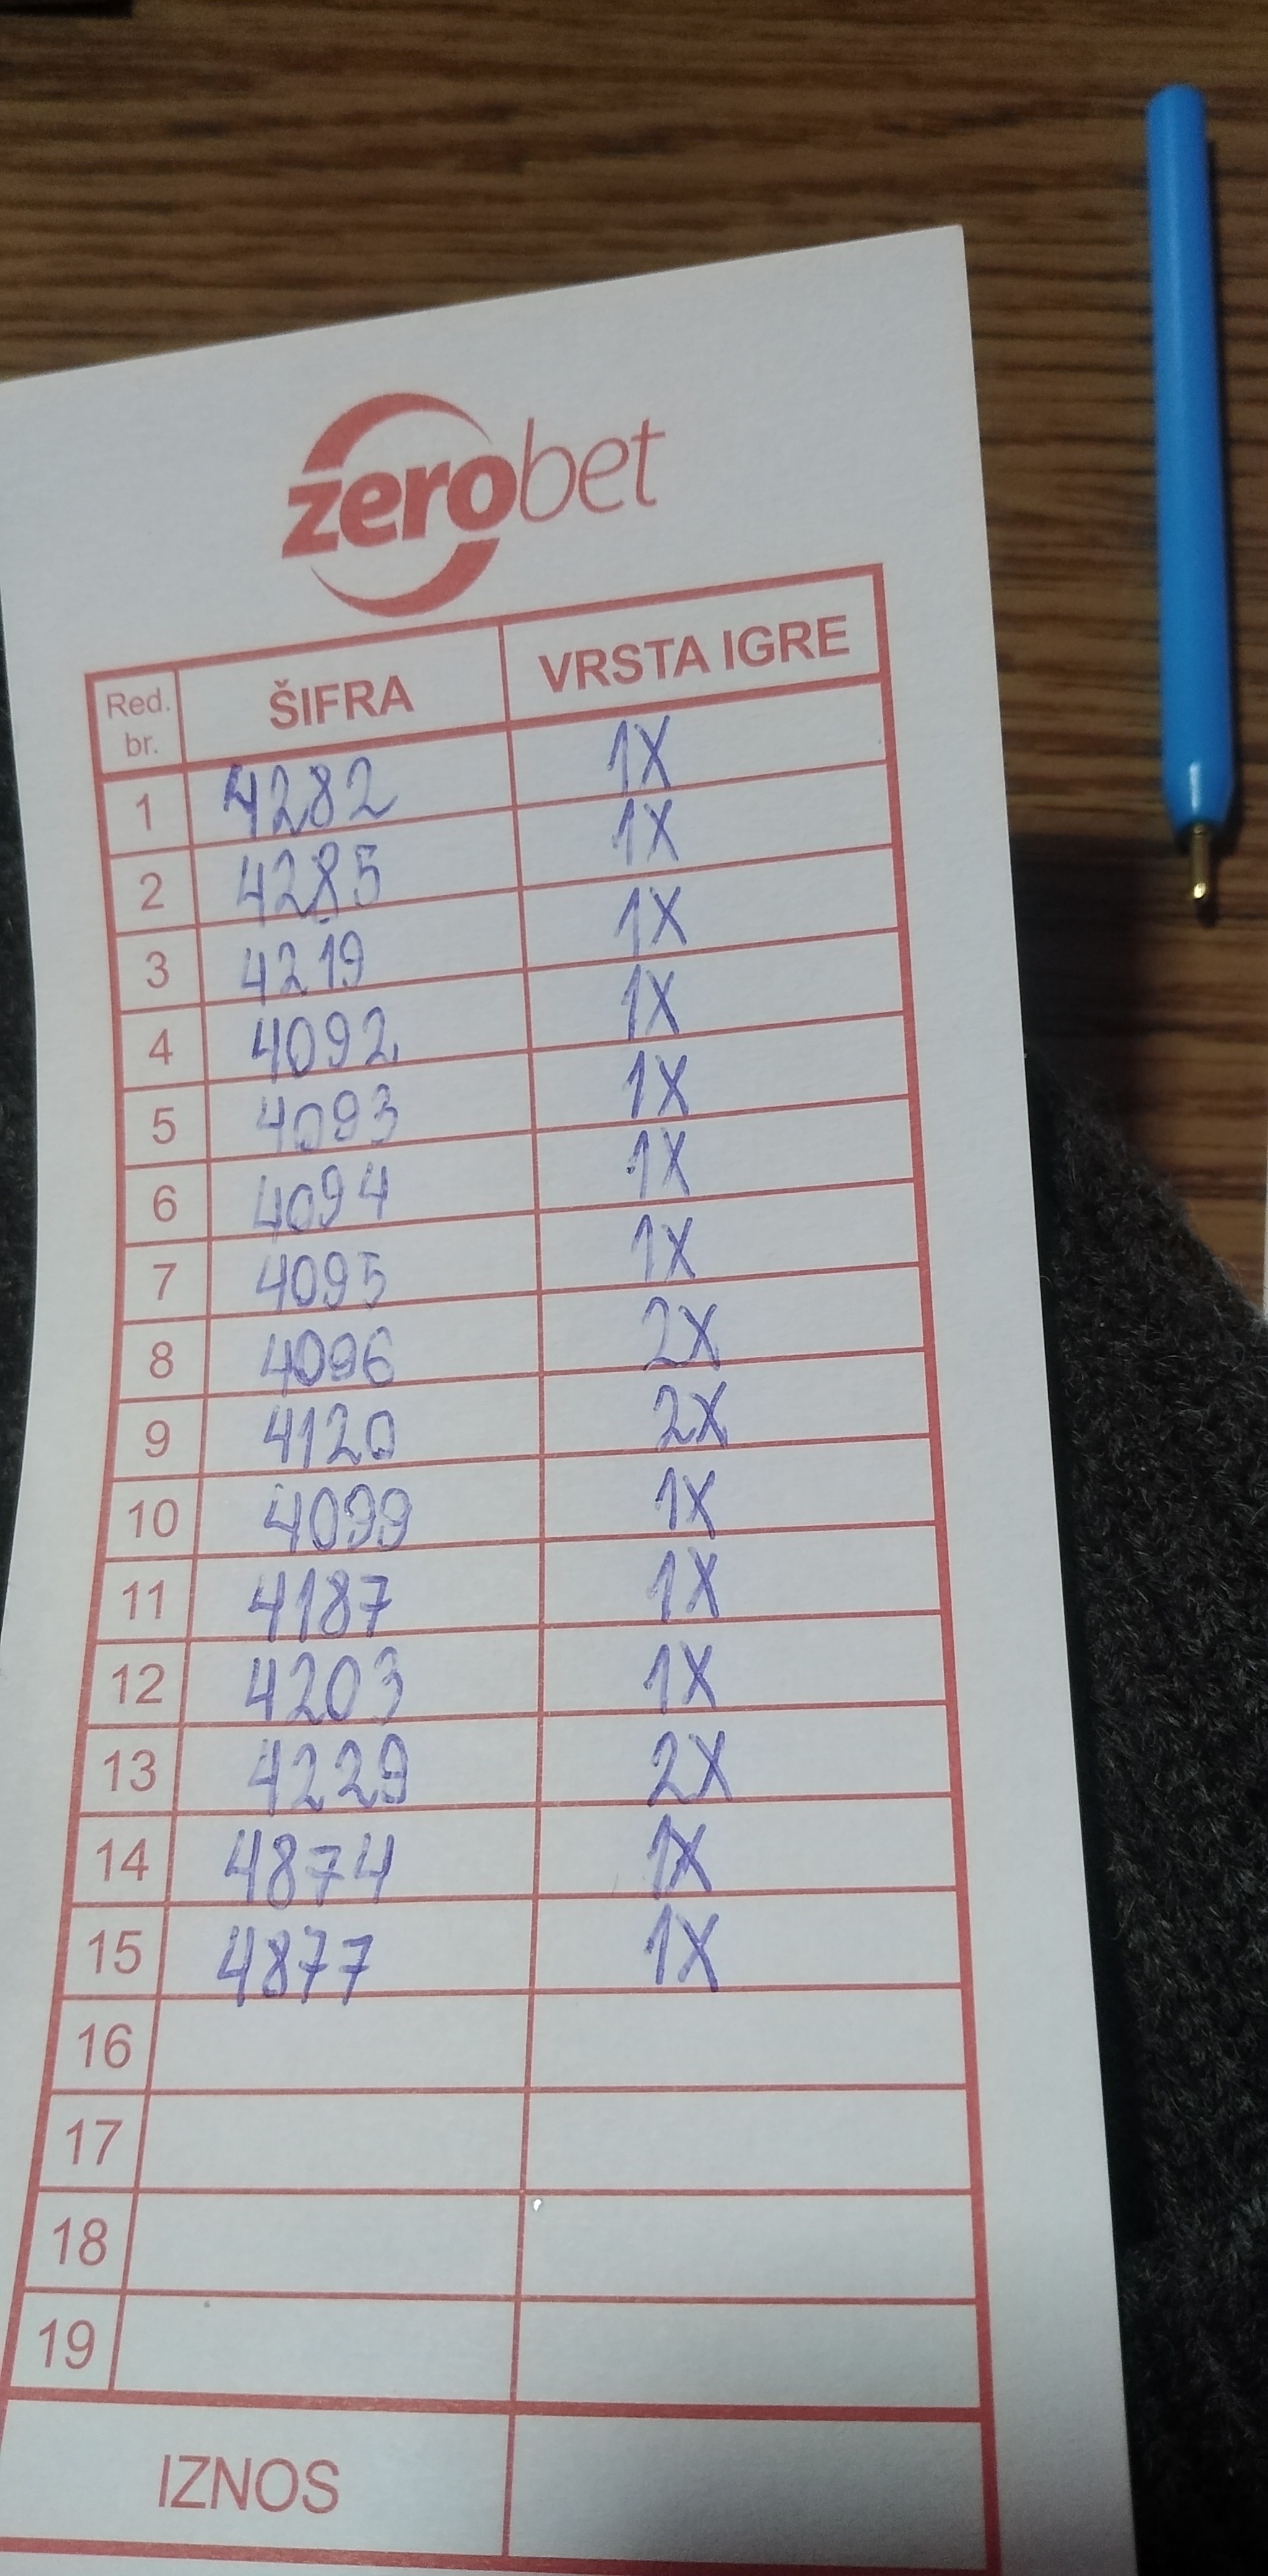 zerobet
Red. br. ŠIFRA VRSTA IGRE
1 4282 1X
2 4285 1X
3 4219 1X
4 4092 1X
5 4093 1X
6 4094 1X
7 4095 1X
8 4096 2X
9 4120 2X
10 4099 1X
11 4187 1X
12 4203 1X
13 4229 2X
14 4874 1X
15 4877 1X
16
17
18
19
IZNOS